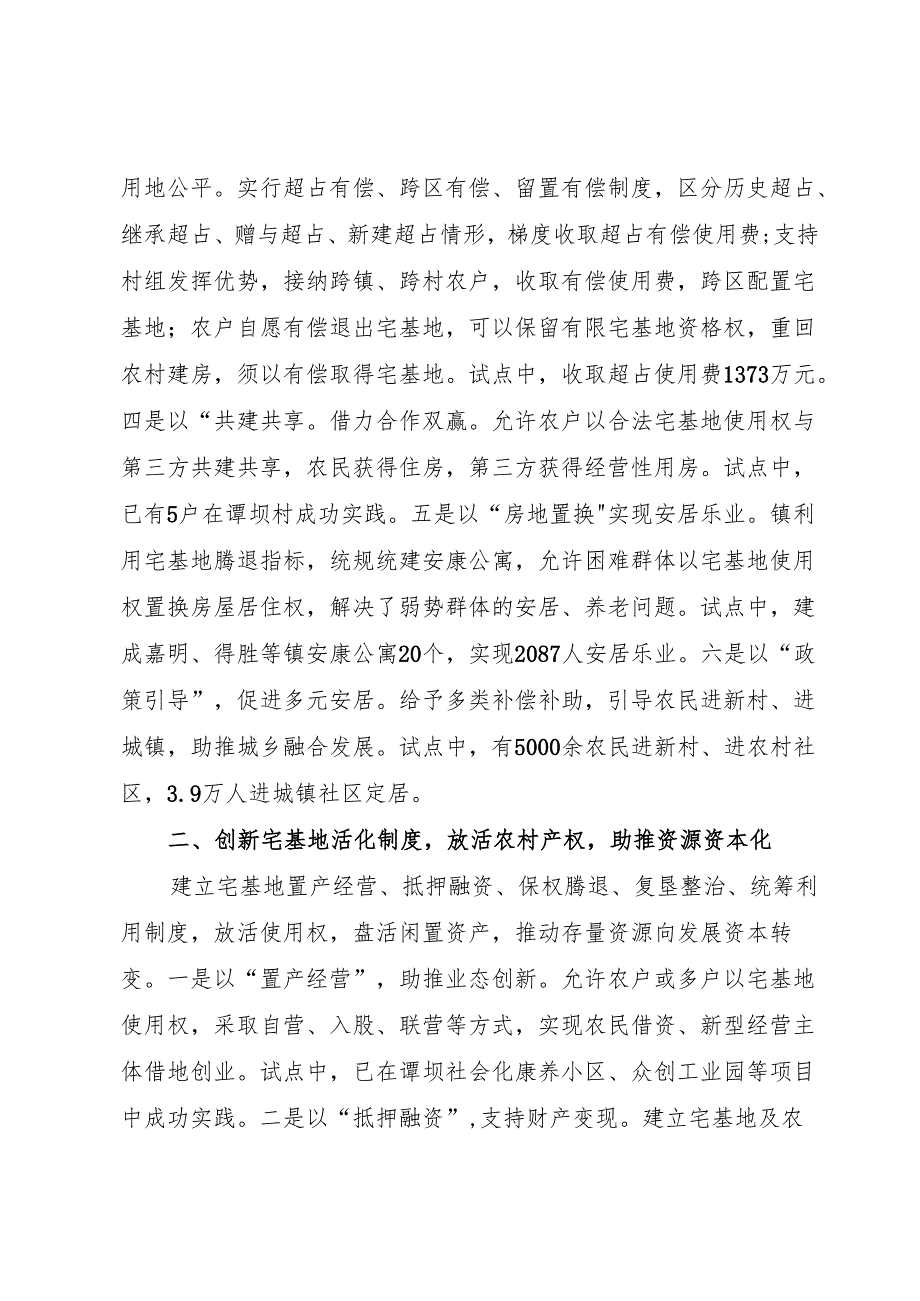 用地公平。实行超占有偿、跨区有偿、留置有偿制度，区分历史超占、
继承超占、赠与超占、新建超占情形，梯度收取超占有偿使用费;支持
村组发挥优势，接纳跨镇、跨村农户，收取有偿使用费，跨区配置宅
基地；农户自愿有偿退出宅基地，可以保留有限宅基地资格权，重回
农村建房，须以有偿取得宅基地。试点中，收取超占使用费1373万元。
四是以“共建共享。借力合作双赢。允许农户以合法宅基地使用权与
第三方共建共享，农民获得住房，第三方获得经营性用房。试点中，
已有5户在谭坝村成功实践。五是以“房地置换"实现安居乐业。镇利
用宅基地腾退指标，统规统建安康公寓，允许困难群体以宅基地使用
权置换房屋居住权，解决了弱势群体的安居、养老问题。试点中，建
成嘉明、得胜等镇安康公寓20个，实现2087人安居乐业。六是以“政
策引导”，促进多元安居。给予多类补偿补助，引导农民进新村、进
城镇，助推城乡融合发展。试点中，有5000余农民进新村、进农村社
区，3.9万人进城镇社区定居。
二、创新宅基地活化制度，放活农村产权，助推资源资本化
建立宅基地置产经营、抵押融资、保权腾退、复垦整治、统筹利
用制度，放活使用权，盘活闲置资产，推动存量资源向发展资本转
变。一是以“置产经营”，助推业态创新。允许农户或多户以宅基地
使用权，采取自营、入股、联营等方式，实现农民借资、新型经营主
体借地创业。试点中，已在谭坝社会化康养小区、众创工业园等项目
中成功实践。二是以“抵押融资”,支持财产变现。建立宅基地及农